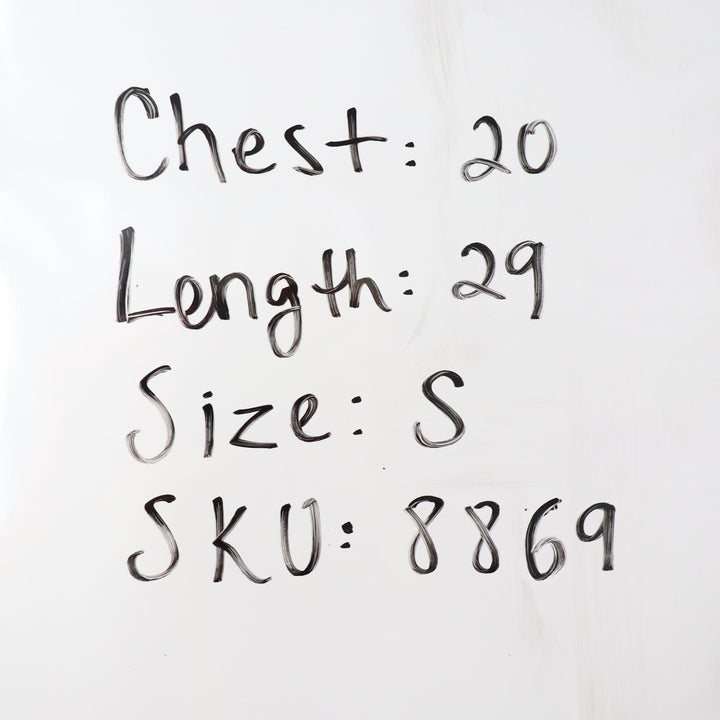 Chest: 20
Length: 29
Size: S
SKU: 8869